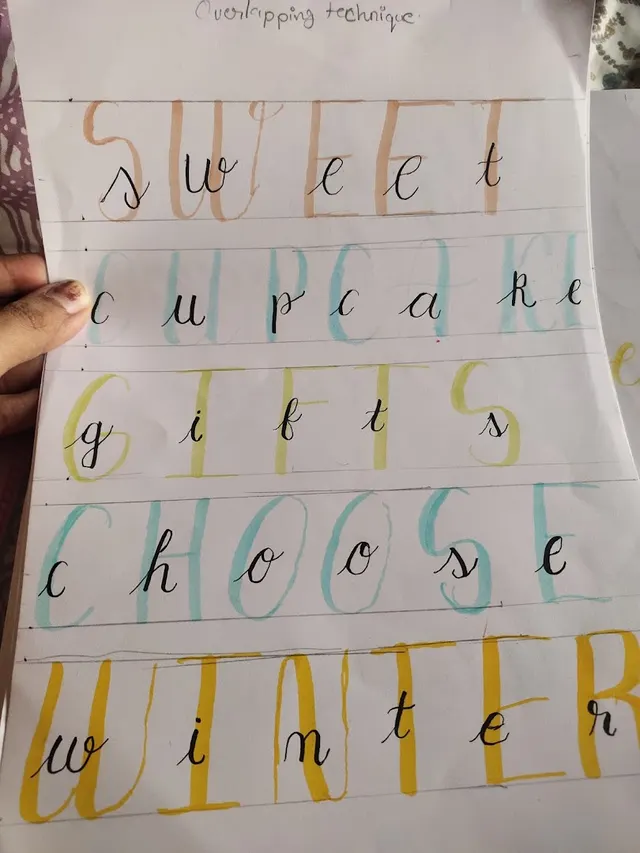 Overlapping technique.
SWEET
s w e e t
CUPCAKE
c u p c a k e
GIFTS
g i f t s
CHOOSE
c h o o s e
WINTER
w i n t e r